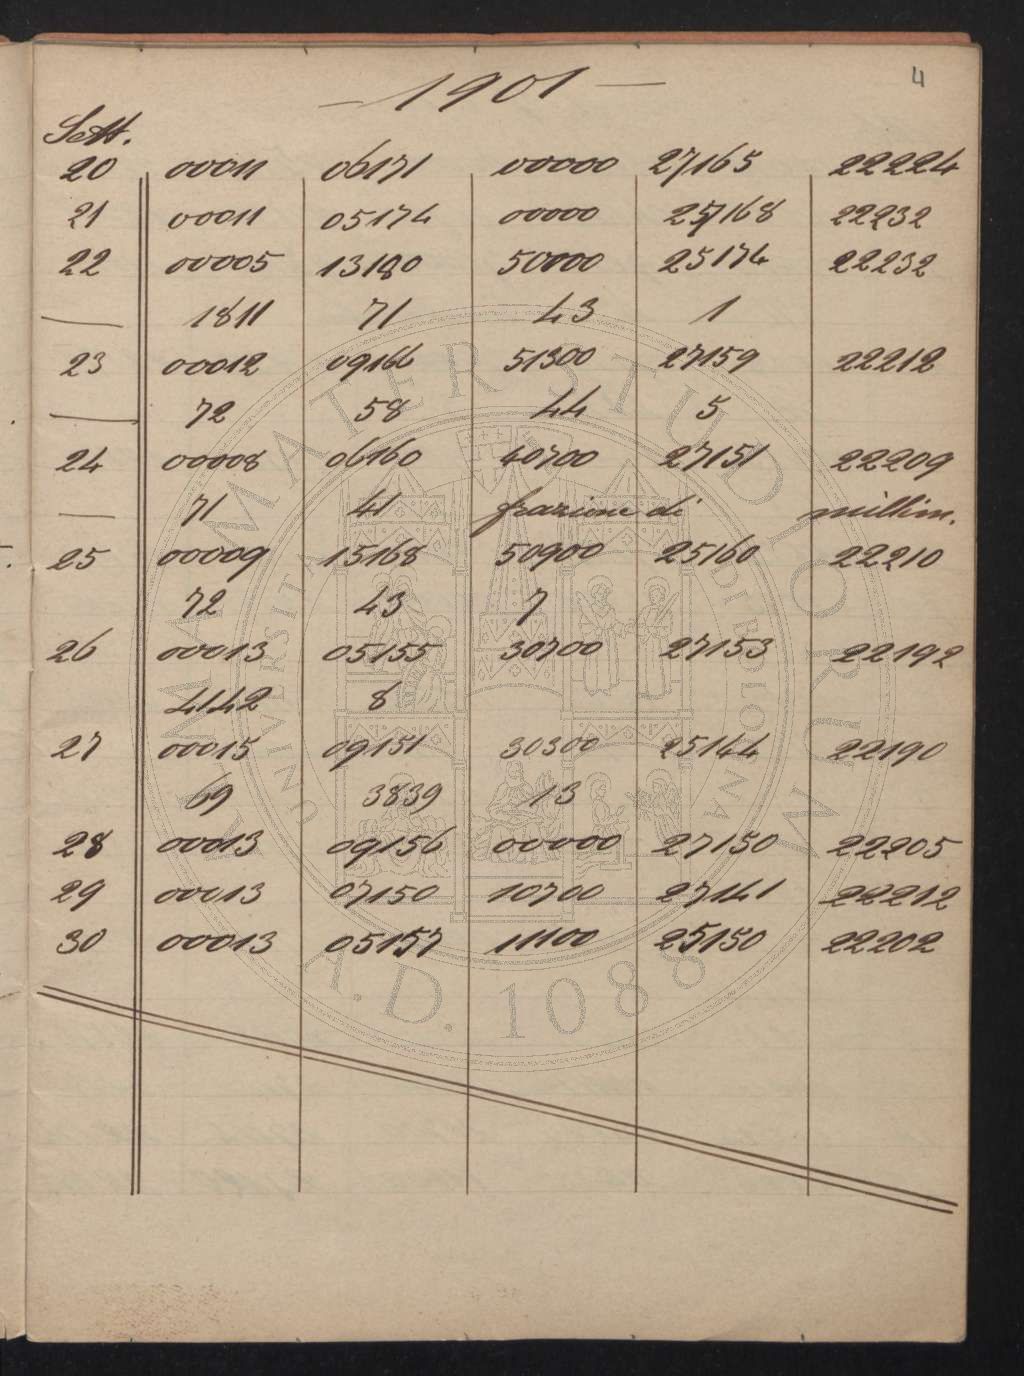 — 1901 —
4
Sett.
20 00011 06171 00000 27165 22224
21 00011 05174 00000 25168 22232
22 00005 13180 50000 25174 22232
— 1811 71 43 1
23 00012 09166 51300 27159 22212
— 72 58 44 5
24 00008 06160 40700 27151 22209
— 71 41 frazione di millim.
25 00009 15168 50900 25160 22210
72 43 7
26 00013 05155 30700 27153 22192
4142 8
27 00015 09151 30300 25144 22190
69 3839 13
28 00013 09156 00000 27150 22205
29 00013 07150 10700 27141 22212
30 00013 05157 11100 25150 22202
ALMA MATER STUDIORUM
UNIVERSITÀ DI BOLOGNA
A.D. 1088